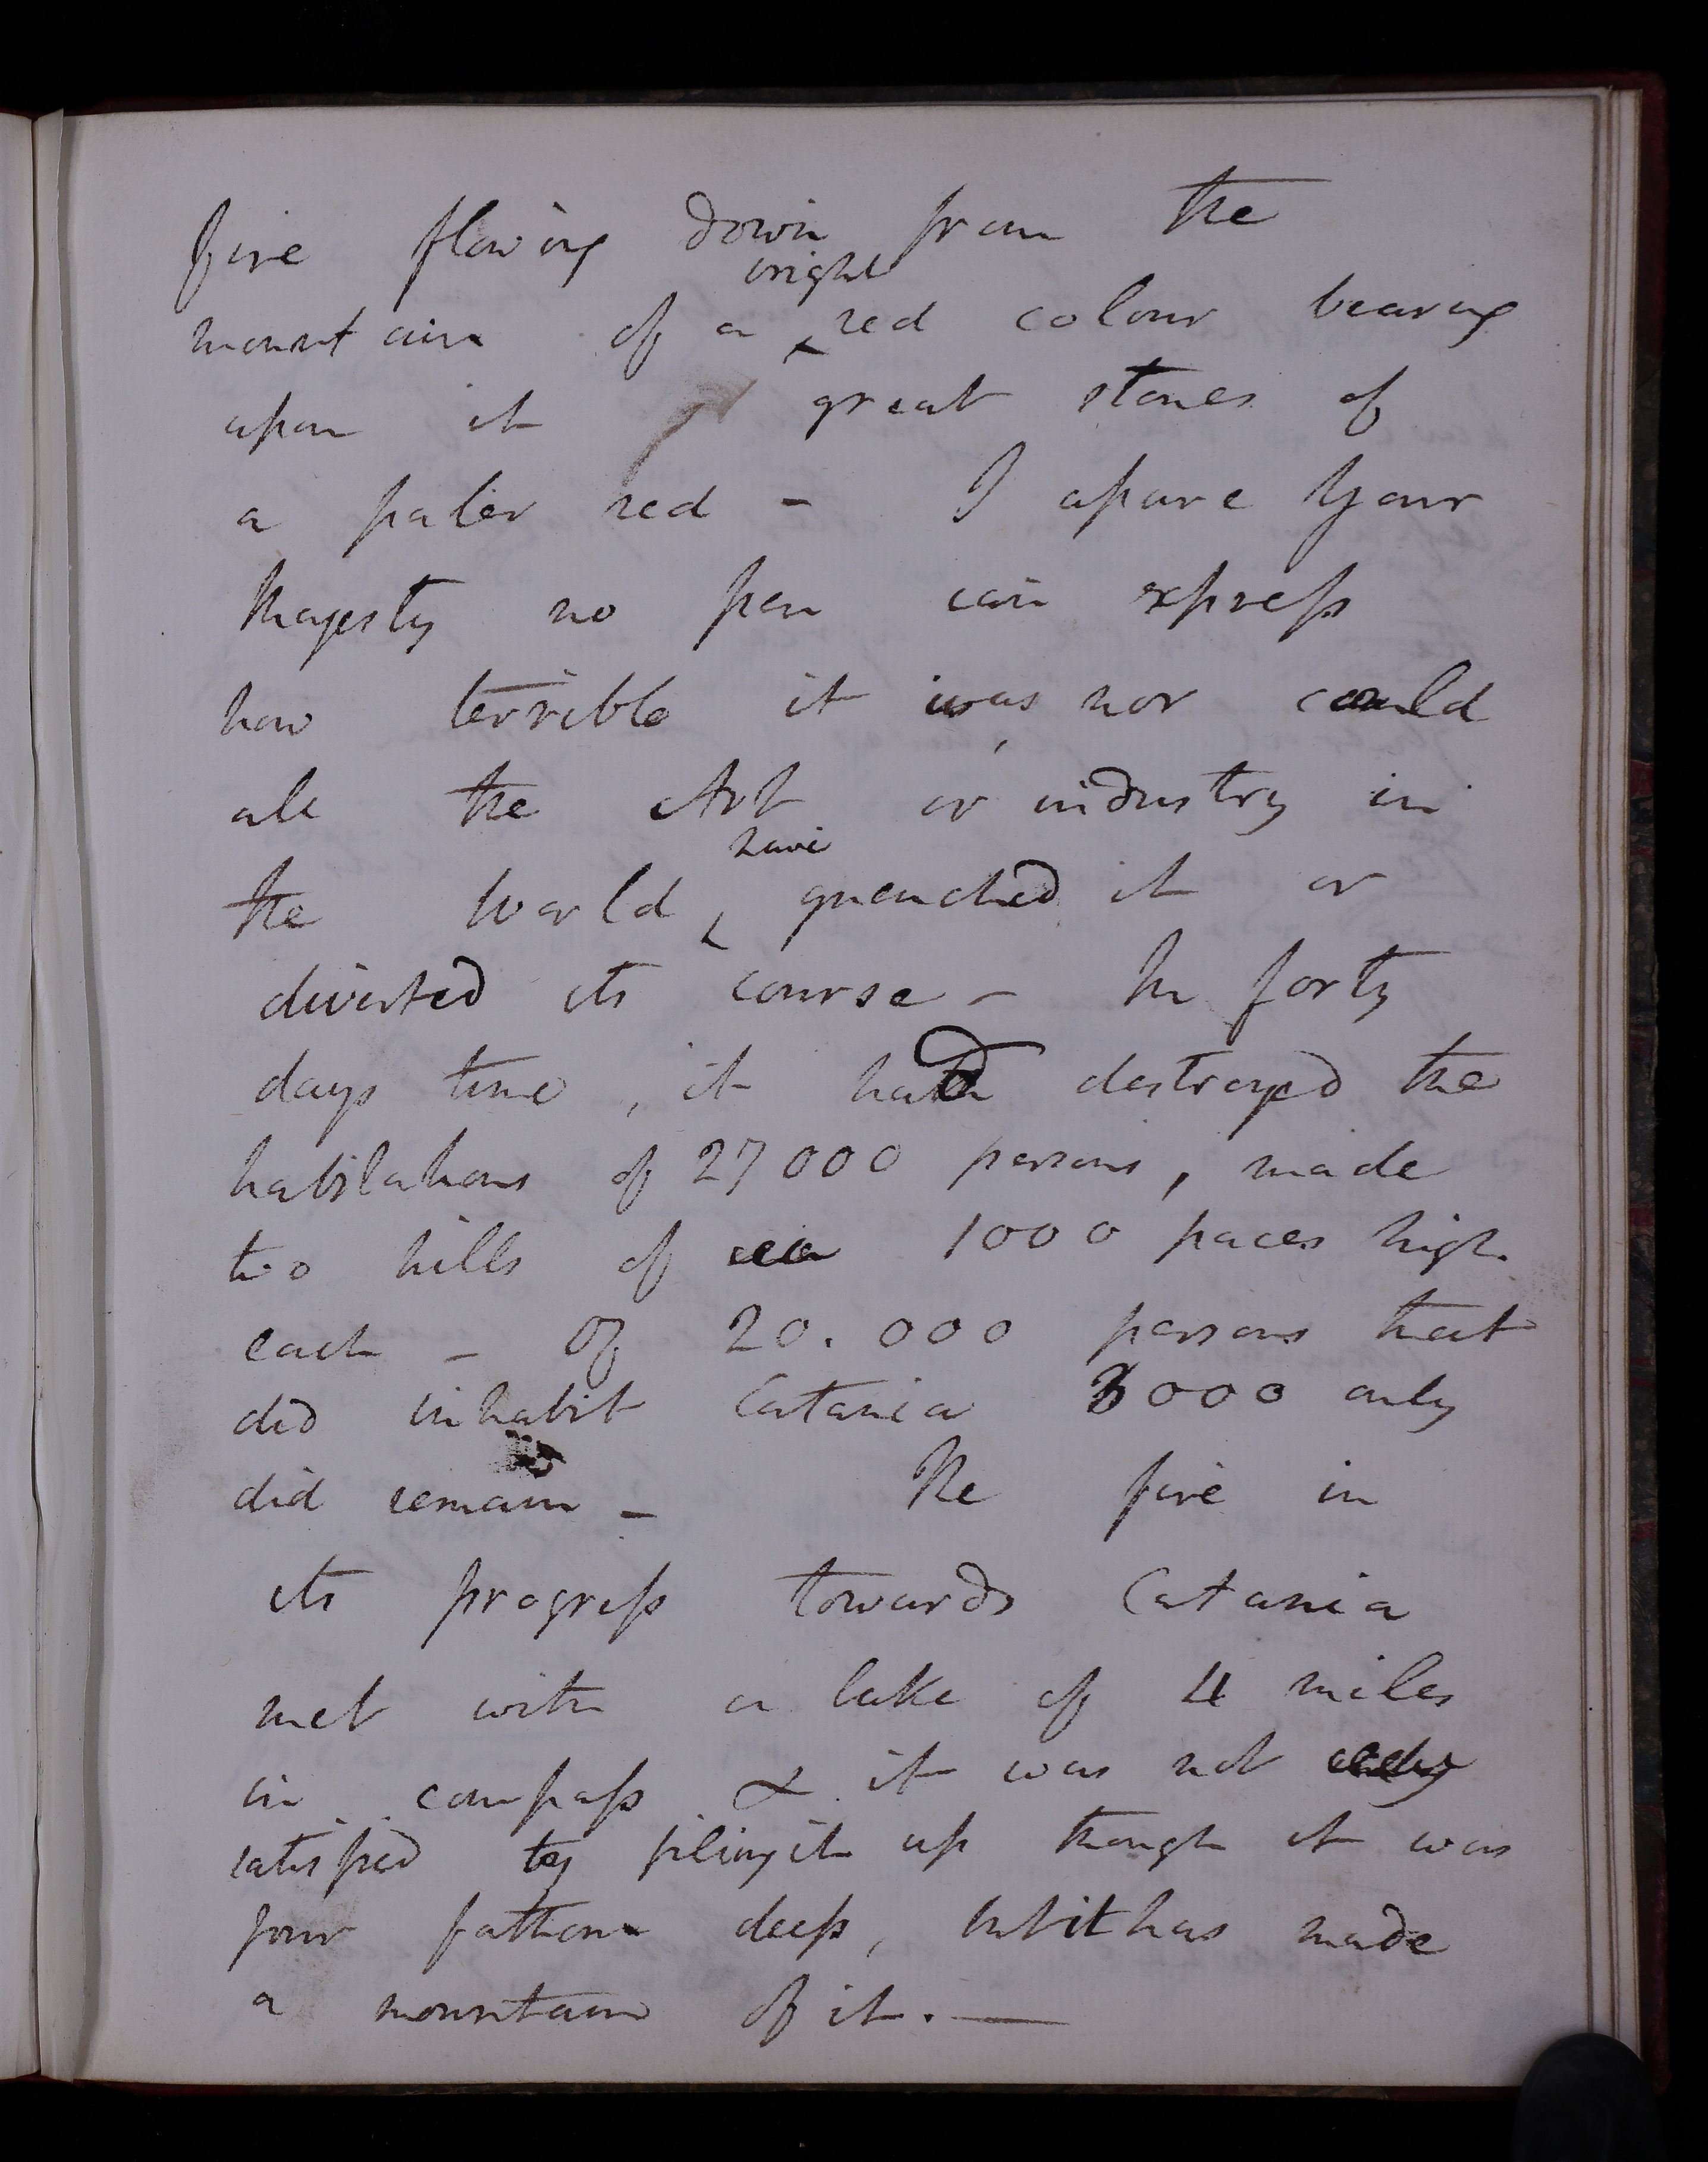 fire flowing down from the
mountain of a bright red colour bearing
upon it great stones of
a paler red - I assure Your
Majesty no pen can express
how terrible it was, nor could
all the Art or industry in
the World have quenched it or
diverted its course - In forty
days time, it had destroyed the
habitations of 27000 persons, made
two hills of 1000 paces high
each - Of 20.000 persons that
did inhabit Catania 3000 only
did remain - The fire in
its progress towards Catania
met with a lake of 4 miles
in compass & it was not only
satisfied by filling it up though it was
four fathom deep, but it has made
a mountain of it. —